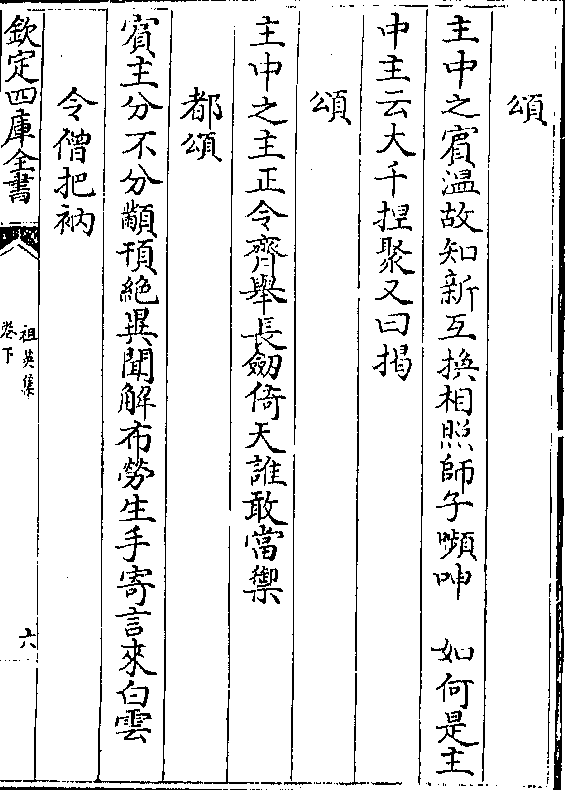 頌
主中之賓溫故知新互換相照師子嚬呻　如何是主
中主云大千捏聚又曰揭
頌
主中之主正令齊舉長劒倚天誰敢當禦
都頌
賓主分不分顢頇絶異聞解布勞生手寄言來白雲
令僧把衲
欽定四庫全書
祖英集
卷下
六